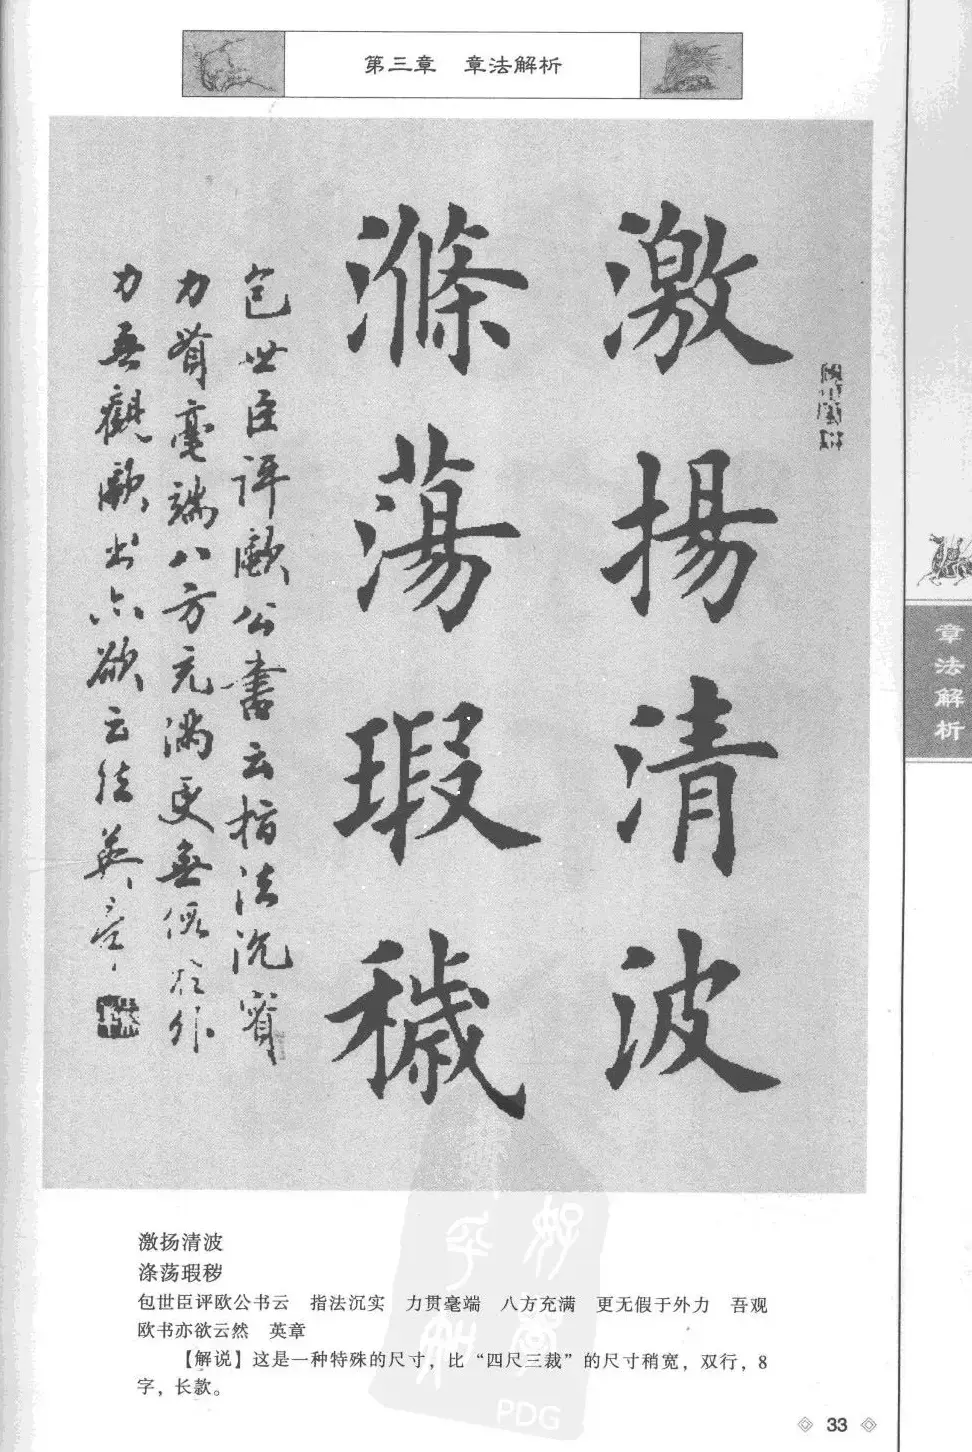 第三章　章法解析
激揚清波
滌蕩瑕穢
包世臣評歐公書云指法沉實
力貫毫端八方充滿更無假於外
力吾觀歐書亦欲云然英章
章法解析
激扬清波
涤荡瑕秽
包世臣评欧公书云　指法沉实　力贯毫端　八方充满　更无假于外力　吾观
欧书亦欲云然　英章
【解说】这是一种特殊的尺寸，比“四尺三裁”的尺寸稍宽，双行，8
字，长款。
PDG
33